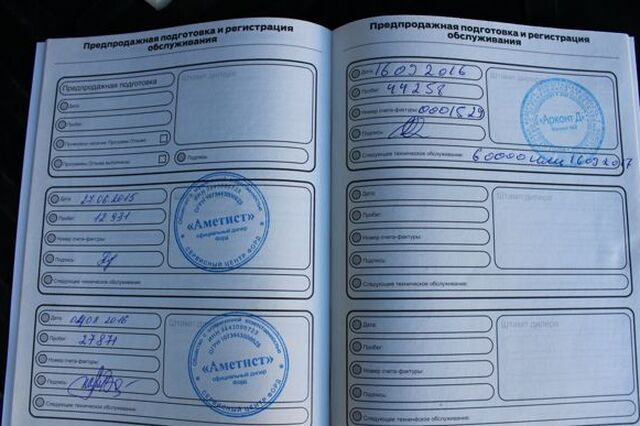 Предпродажная подготовка и регистрация
обслуживания
Предпродажная подготовка
Штамп дилера
Дата
Пробег
Подпись
Дата 27.06.2015
Пробег 12 931
Номер счета-фактуры
Подпись
Следующее техническое обслуживание:
«Аметист»
официальный дилер
Форд
СЕРВИСНЫЙ ЦЕНТР ФОРД
Дата
Штамп дилера
Пробег 27871
Номер счета-фактуры
Подпись
Следующее техническое обслуживание:
«Аметист»
официальный дилер
Форд
СЕРВИСНЫЙ ЦЕНТР ФОРД
Предпродажная подготовка и регистрация
обслуживания
Дата 16 03 2016
Штамп дилера
Пробег 44258
Номер счета-фактуры 0001529
Подпись
«Арконт Д»
Следующее техническое обслуживание: 60000 или 16032017
Дата
Штамп дилера
Пробег
Номер счета-фактуры
Подпись
Следующее техническое обслуживание:
Дата
Штамп дилера
Пробег
Номер счета-фактуры
Подпись
Следующее техническое обслуживание: